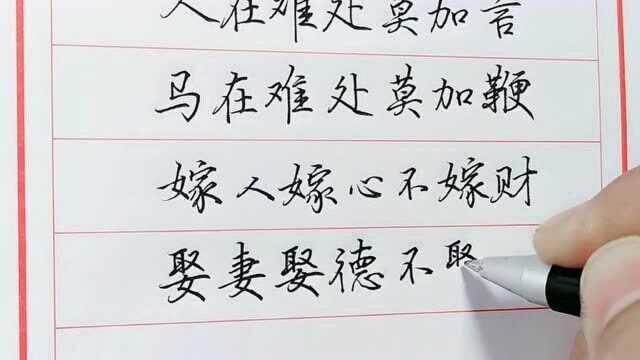 人在难处莫加言
马在难处莫加鞭
嫁人嫁心不嫁财
娶妻娶德不